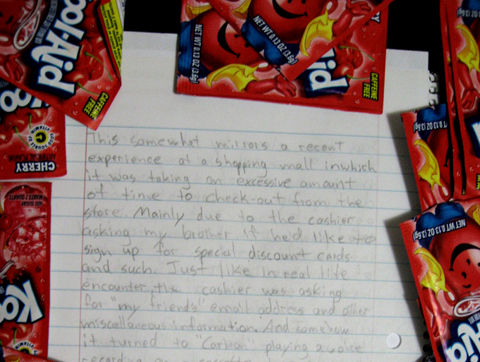 Kool-Aid
CAFFEINE FREE
NET WT. 0.13 OZ (3.6g)
NET WT. 0.13 OZ (3.6g)
Aid
CAFFEINE FREE
CHERRY
Ko
NET WT 0.13 OZ (3.6g)
NET WT. 0.13 OZ (3.6g)
This somewhat mirrors a recent
experience at a shopping mall inwhich
it was taking an excessive amount
of time to check-out from the
store. Mainly due to the cashier
asking my brother if he'd like to
sign up for special discount cards
and such. Just like in real life
encounter, the cashier was asking
for "my friends" email address and other
miscellaneous information. And somehow
it turned to "Carman" playing a voice
recording